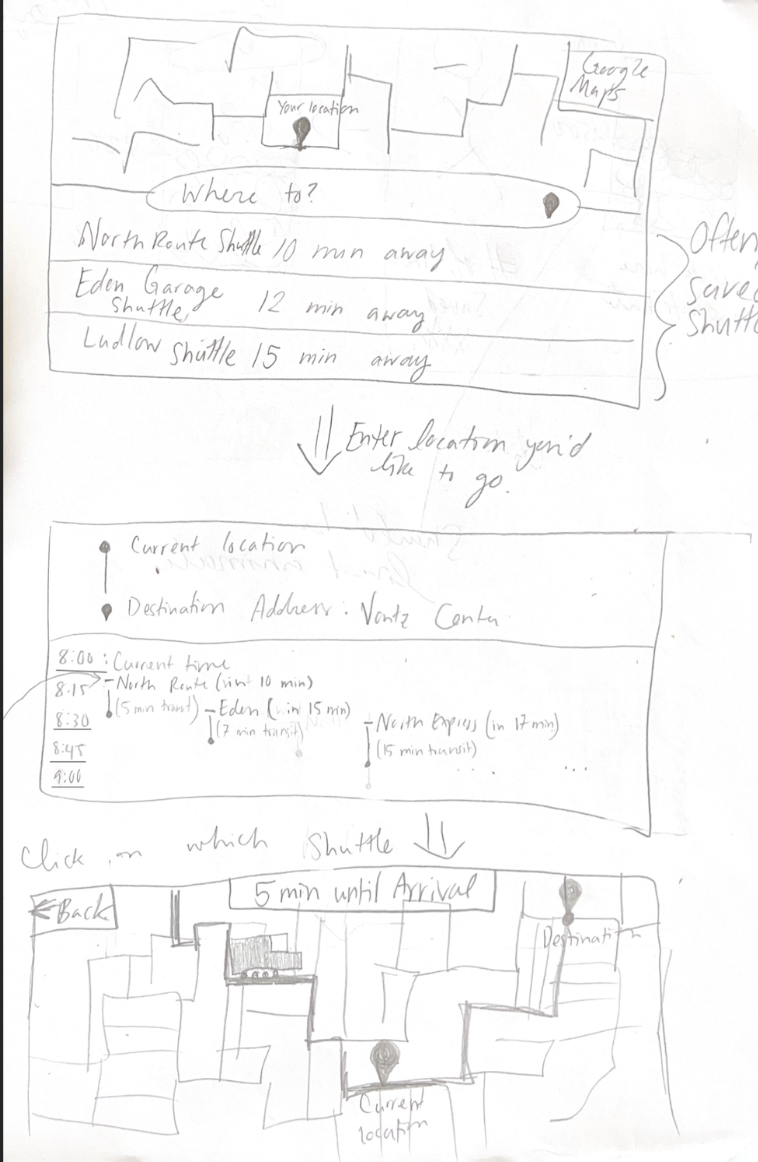 Google
Maps
Your location
Where to?
North Route Shuttle 10 min away
Eden Garage
Shuttle 12 min away
Ludlow Shuttle 15 min away
Often
saved
Shuttle
Enter location you'd
like to go.
Current location
Destination Address: Vontz Center
8:00 : Current time
8:15 - North Route (in 10 min)
(5 min transit) - Eden (in 15 min)
8:30 (7 min transit) - North Express (in 17 min)
8:45 (15 min transit)
9:00 ... ...
Click on which Shuttle
← Back
5 min until Arrival
Destination
Current
location